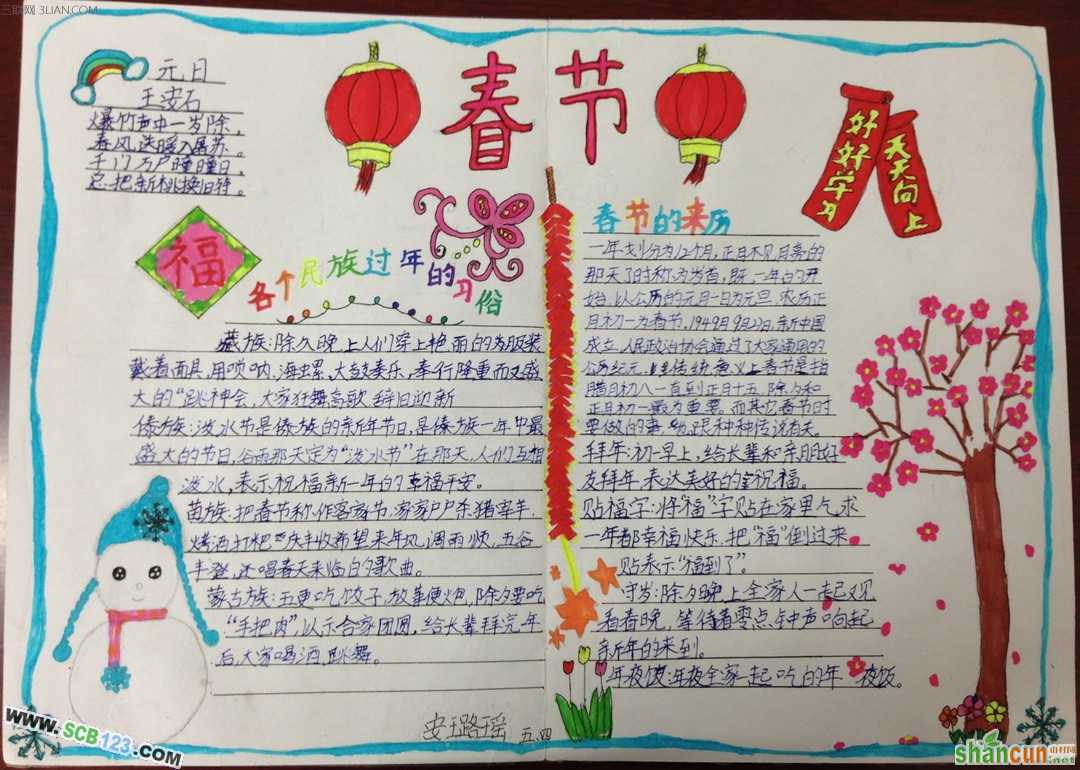 三联网 3LIAN.COM
春节
元日
王安石
爆竹声中一岁除，
春风送暖入屠苏。
千门万户曈曈日，
总把新桃换旧符。
福
各个民族过年的习俗
藏族：除夕晚上人们穿上艳丽的为服装
戴着面具，用唢呐，海螺、大鼓奏乐，奉行隆重而又盛
大的“跳神会，大家狂舞高歌 辞旧迎新
傣族：泼水节是傣族的新年节日，是傣族一年中最
盛大的节日，谷雨那天定为“泼水节”在那天，人们互相
泼水，表示祝福新一年的幸福平安。
苗族：把春节称作客家节，家家户户杀猪宰羊，
烤酒打粑庆丰收希望来年风调雨顺，五谷
丰登，还唱春天来临白的歌曲。
蒙古族：五更吃饺子，放革便火包，除夕要吃
“手把肉”，以示合家团圆，给长辈拜完年
后，大家喝酒，跳舞。
好好学习
天天向上
春节的来历
一年划分为12个月，正月不见月亮的
那天了时称为岁首，既一年的开
始，以公历的元月一日为元旦 农历正
月初一为春节，1949月9月27日，新中国
成立，人民政治协会通过了大家通用的
公历纪元，传统意义上春节是指
腊月初八一直到正月十五，除夕和
正月初一最为重要。而其它春节时
要做的事 也跟种种传说有关。
拜年：初一早上，给长辈和亲朋好
友拜年，表达美好的祝福。
贴福字：将“福”字贴在家里气求
一年都幸福快乐，把“福”倒过来
贴表示“福到了”。
守岁：除夕晚，上全家人一起又见
看春晚，等待着零点钟声响起
新年的来到。
年夜饭：年夜全家一起吃的年夜饭。
安珏路瑶 五.四
www.SCB123.COM
shancun
山村网
.net